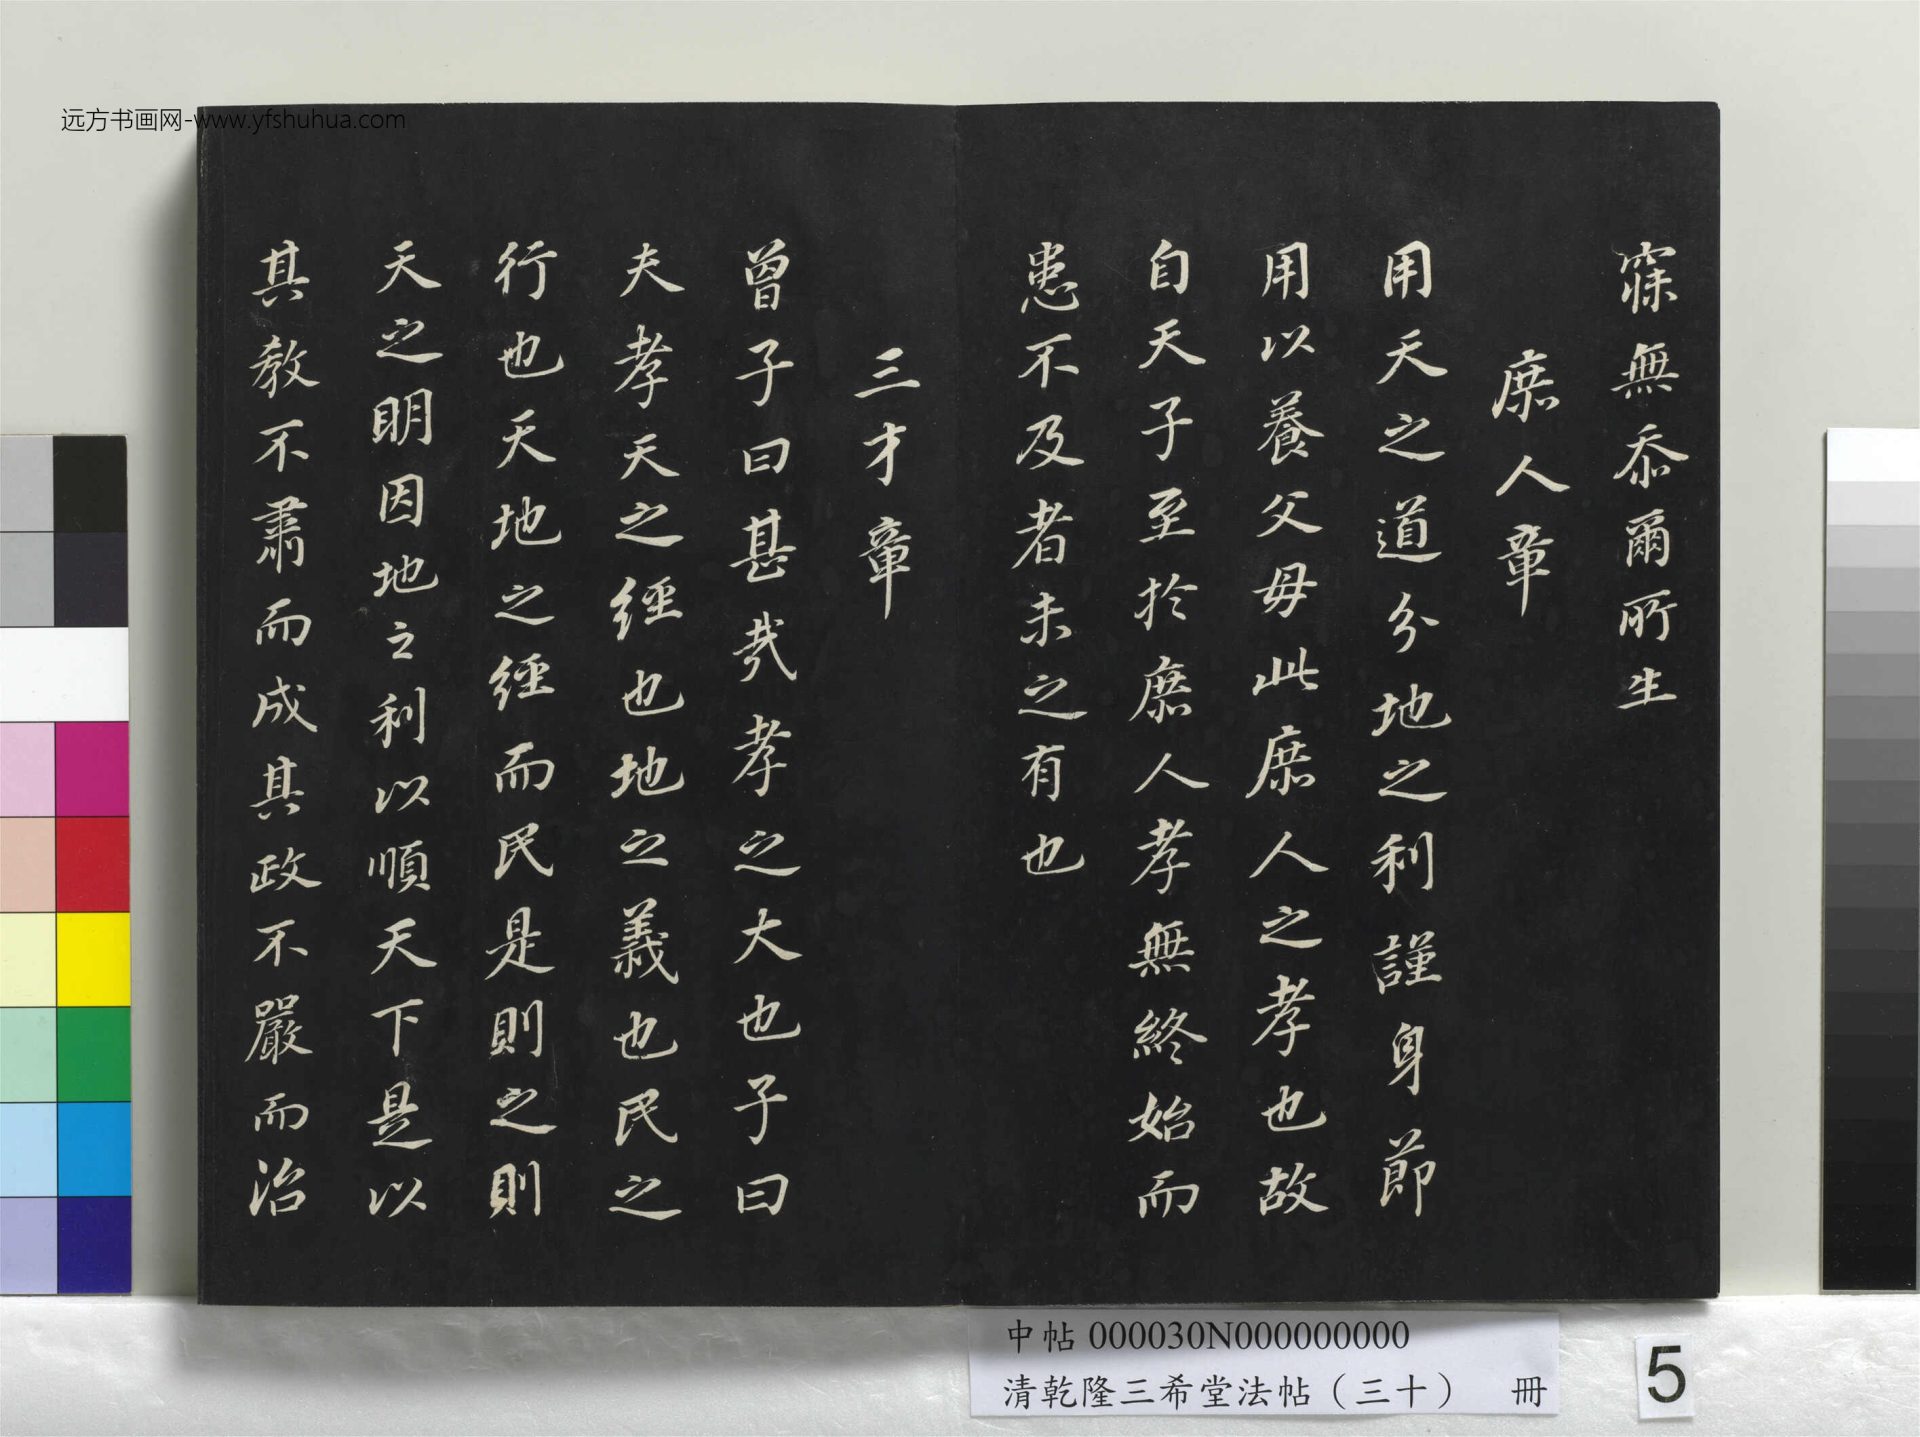 远方书画网-www.yfshuhua.com
寐無忝爾所生
庶人章
用天之道分地之利謹身節
用以養父母此庶人之孝也故
自天子至於庶人孝無終始而
患不及者未之有也
三才章
曾子曰甚哉孝之大也子曰
夫孝天之經也地之義也民之
行也天地之經而民是則之則
天之明因地之利以順天下是以
其教不肅而成其政不嚴而治
中帖 000030N000000000
清乾隆三希堂法帖（三十） 冊
5